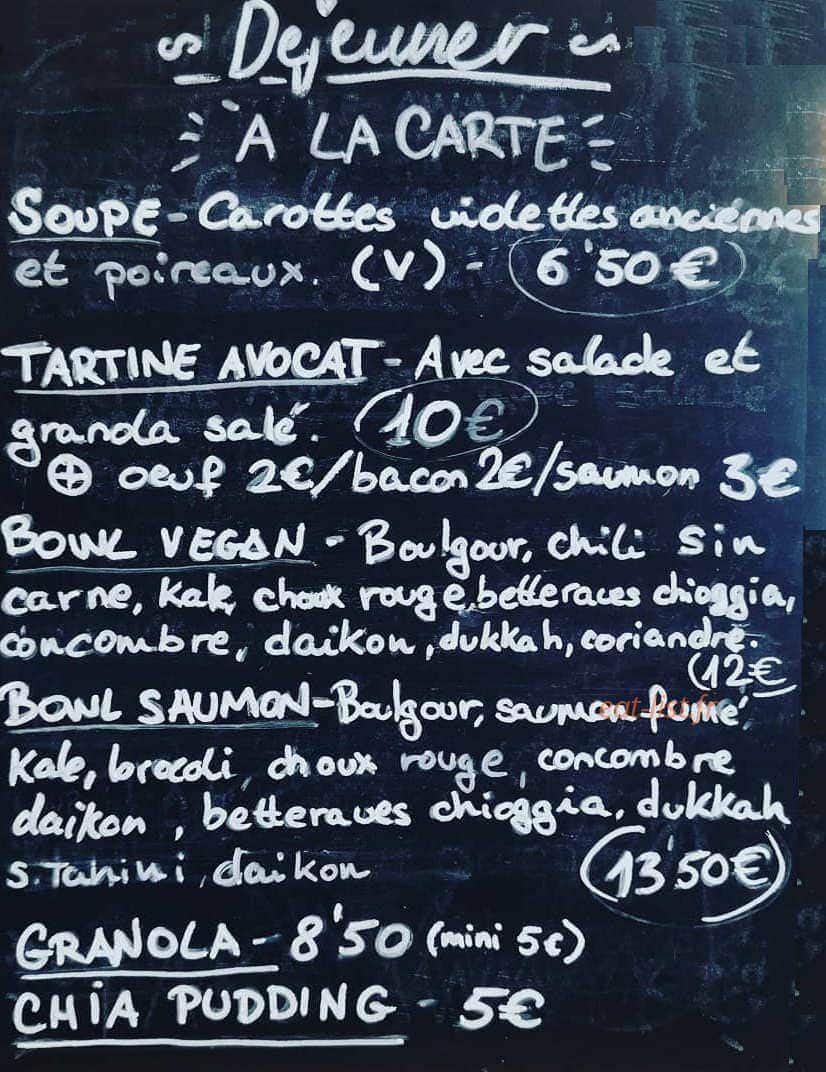 ~ Dejeuner ~
À LA CARTE
SOUPE - Carottes violettes anciennes
et poireaux. (V) - 6'50€
TARTINE AVOCAT - Avec salade et
granola salé. 10€
⊕ oeuf 2€/bacon 2€/saumon 3€
BOWL VEGAN - Boulgour, chili sin
carne, Kale, choux rouge, betteraves chioggia,
concombre, daikon, dukkah, coriandre.
(12€
BOWL SAUMON - Boulgour, saumon fumé,
Kale, brocoli, choux rouge, concombre
daikon, betteraves chioggia, dukkah
S. Tahini, daikon (13'50€)
GRANOLA - 8'50 (mini 5€)
CHIA PUDDING - 5€